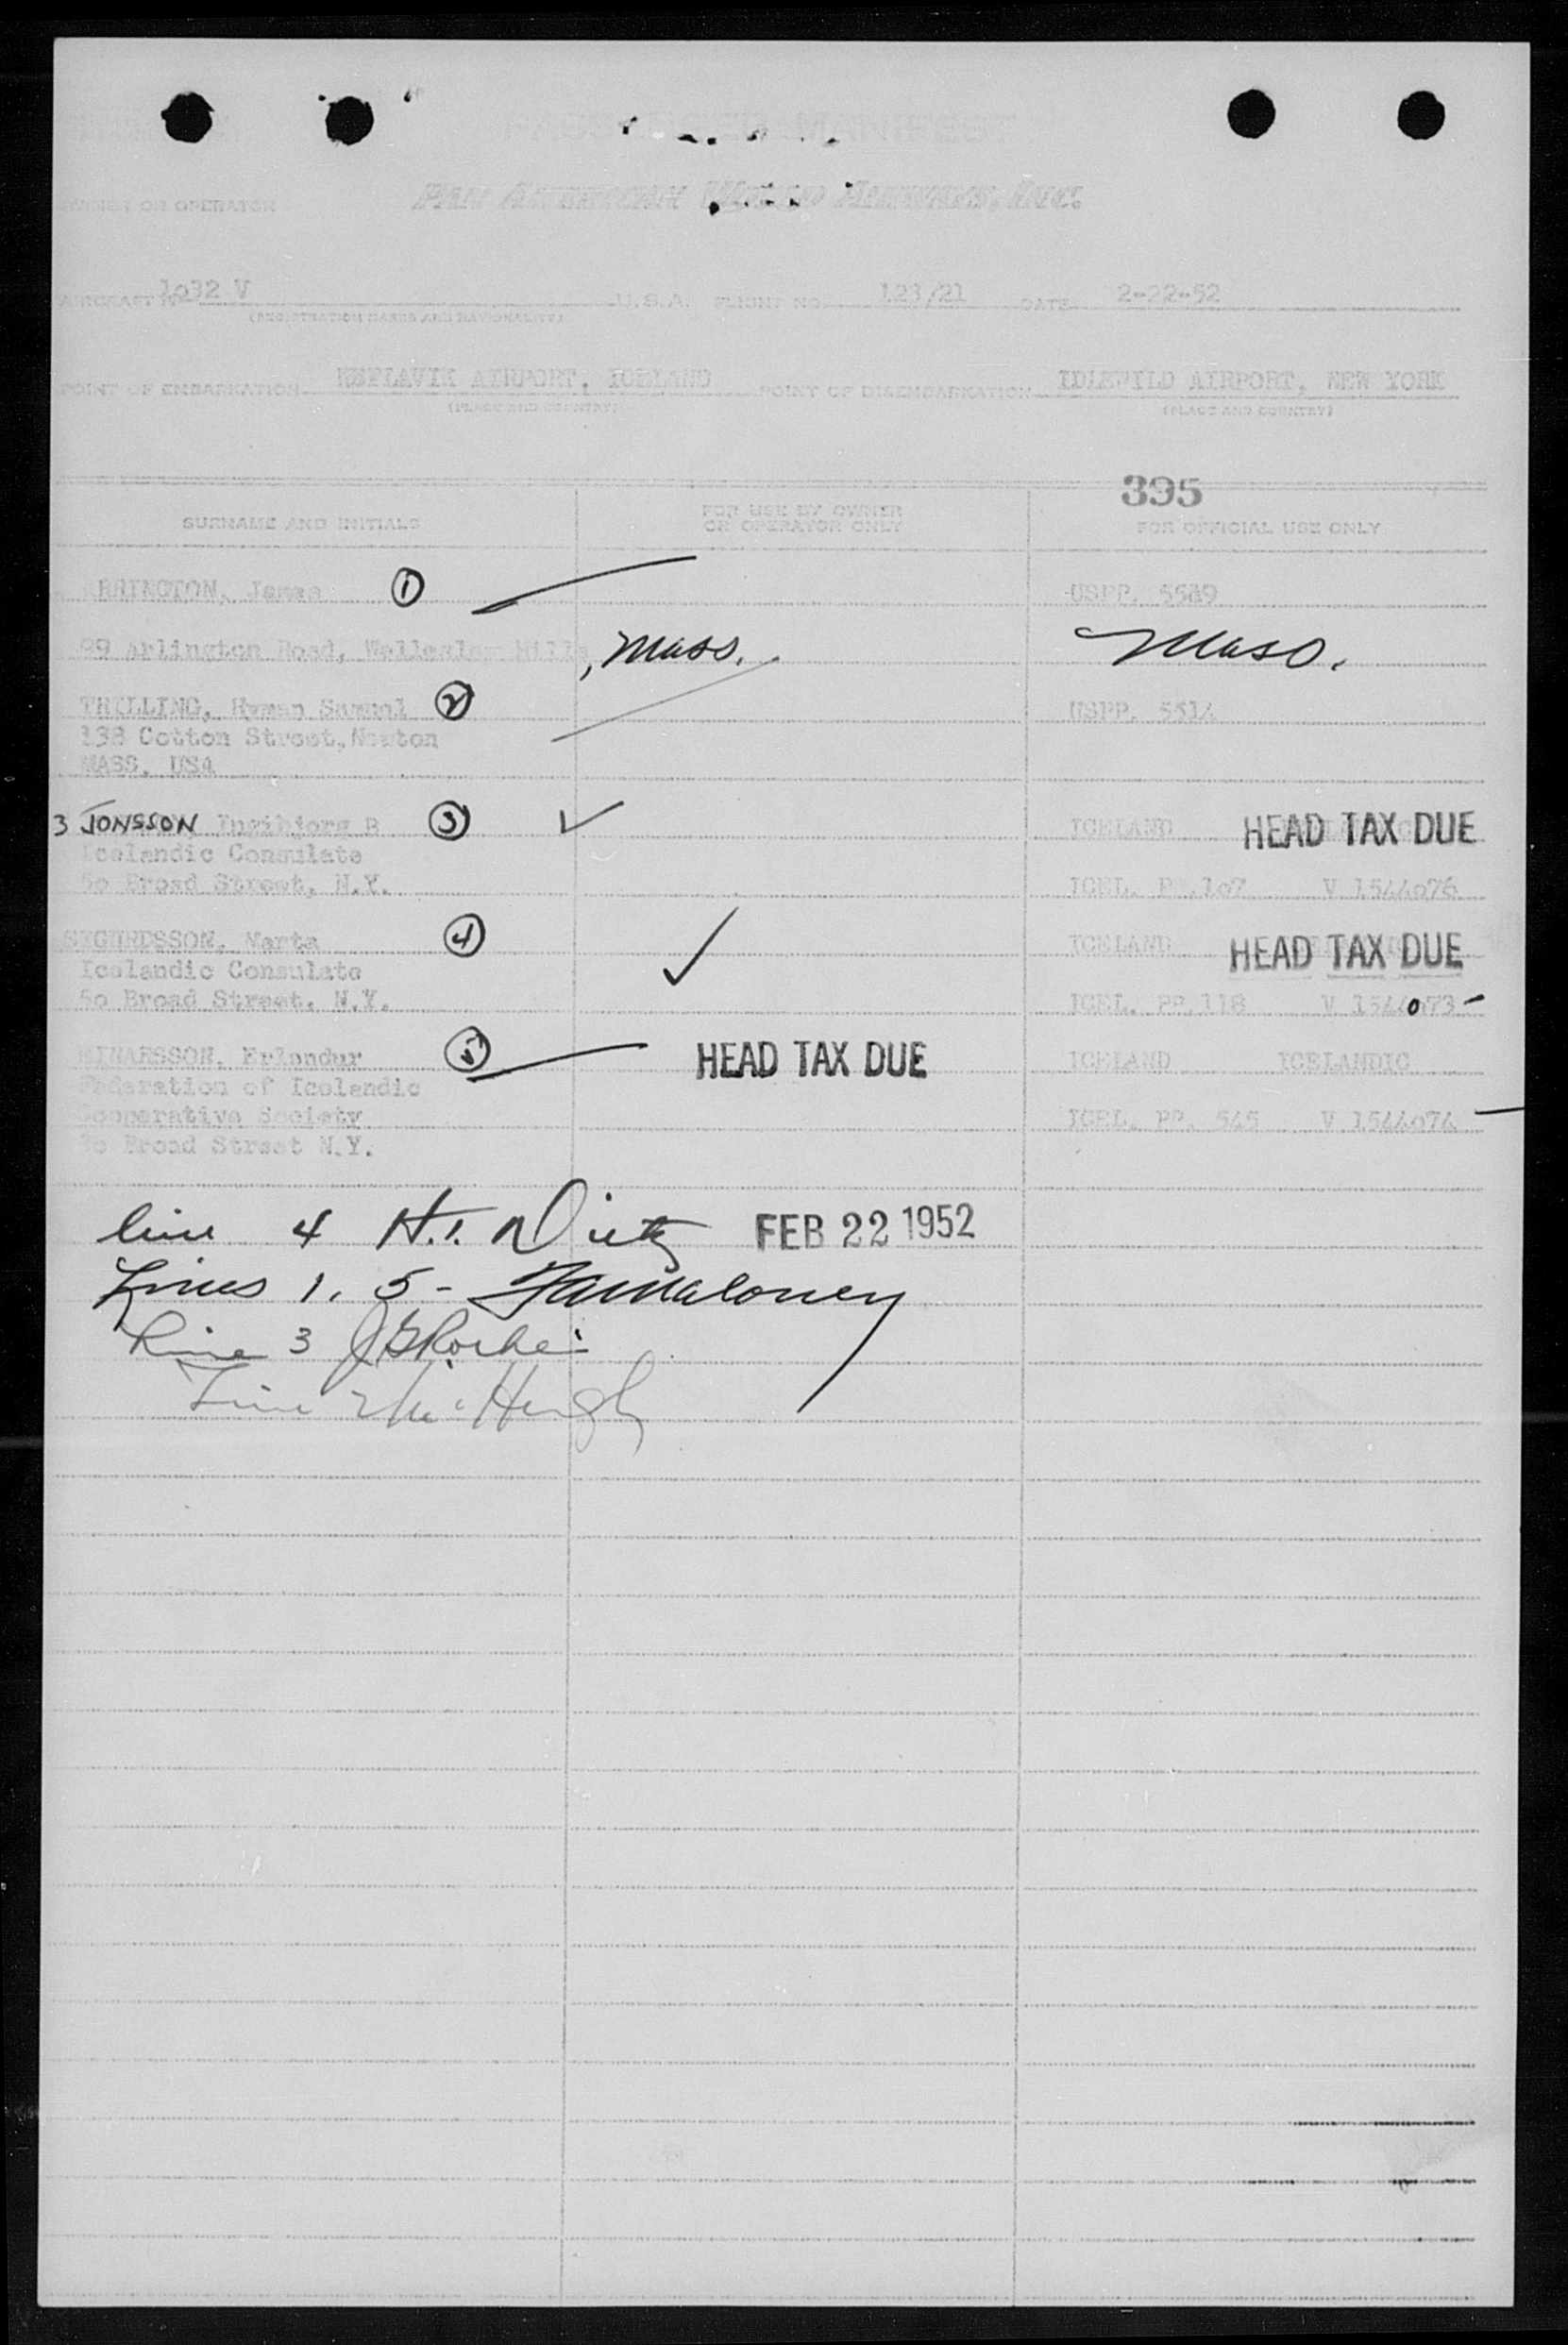 PASSENGER MANIFEST
OWNER OR OPERATOR PAN AMERICAN WORLD AIRWAYS, INC.
AIRCRAFT 1032 V U.S.A. FLIGHT NO. 123/21 DATE 2-22-52
(REGISTRATION MARKS AND NATIONALITY)
POINT OF EMBARKATION KEFLAVIK AIRPORT, ICELAND POINT OF DISEMBARKATION IDLEWILD AIRPORT, NEW YORK
(PLACE AND COUNTRY) (PLACE AND COUNTRY)
395
SURNAME AND INITIALS FOR USE BY OWNER OR OPERATOR ONLY FOR OFFICIAL USE ONLY
James 1 USPP. 5589
99 Arlington Road, Wellesley Hills, Mass. Mass.
THILLING, Hyman Samuel 2 USPP. 5514
138 Cotton Street, Newton
MASS, USA
3 JONSSON Ingibjorg B 3 ICELAND HEAD TAX DUE
Icelandic Consulate
50 Broad Street, N.Y. ICEL. PP. 107 V 1544076
SIGURDSSON, Marta 4 ICELAND HEAD TAX DUE
Icelandic Consulate
50 Broad Street, N.Y. ICEL. PP. 118 V 1544073 -
EINARSSON, Erlendur 5 HEAD TAX DUE ICELAND ICELANDIC
Federation of Icelandic
Cooperative Society ICEL. PP. 545 V 1544074 -
50 Broad Street N.Y.
line 4 H.I. Dietz FEB 22 1952
Lines 1. 5 - Maloney
Line 3 J Roche
Line 2 McHugh